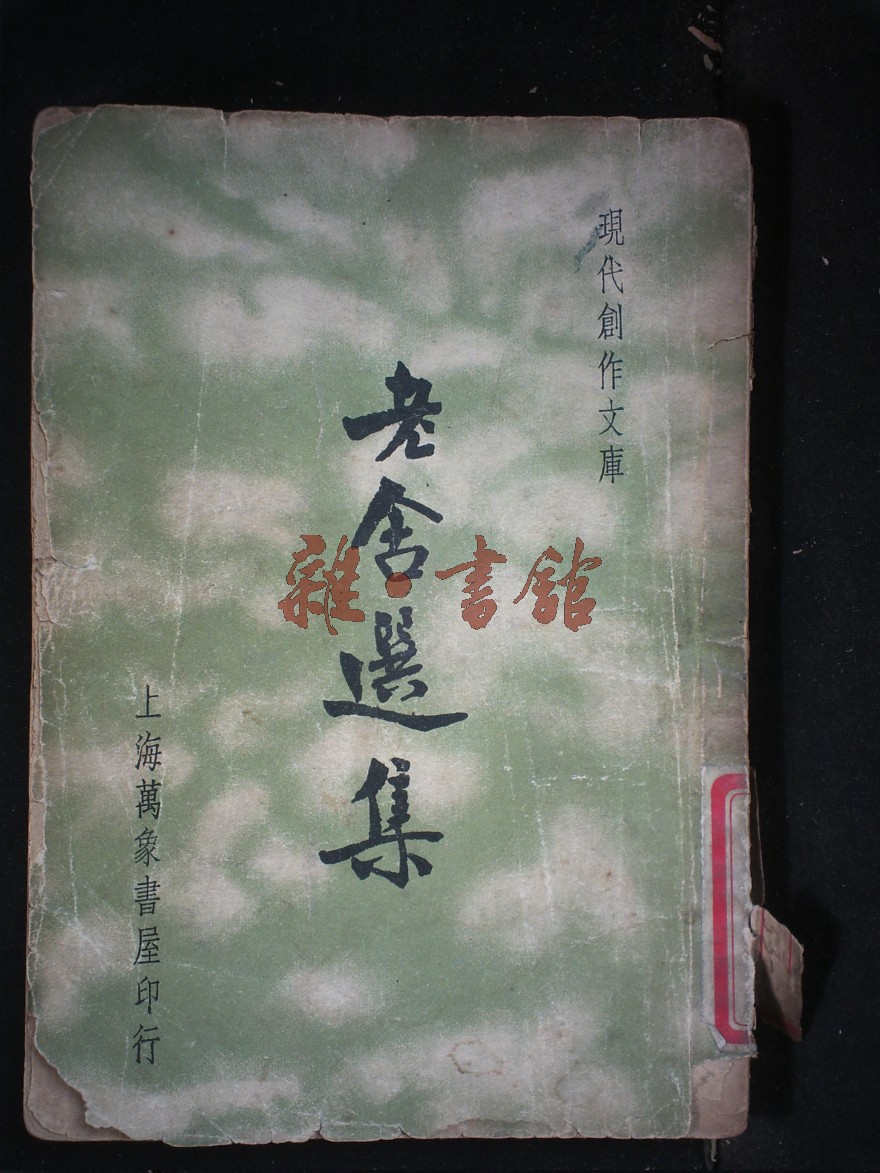 現代創作文庫
老舍選集
上海萬象書屋印行
雜·書館